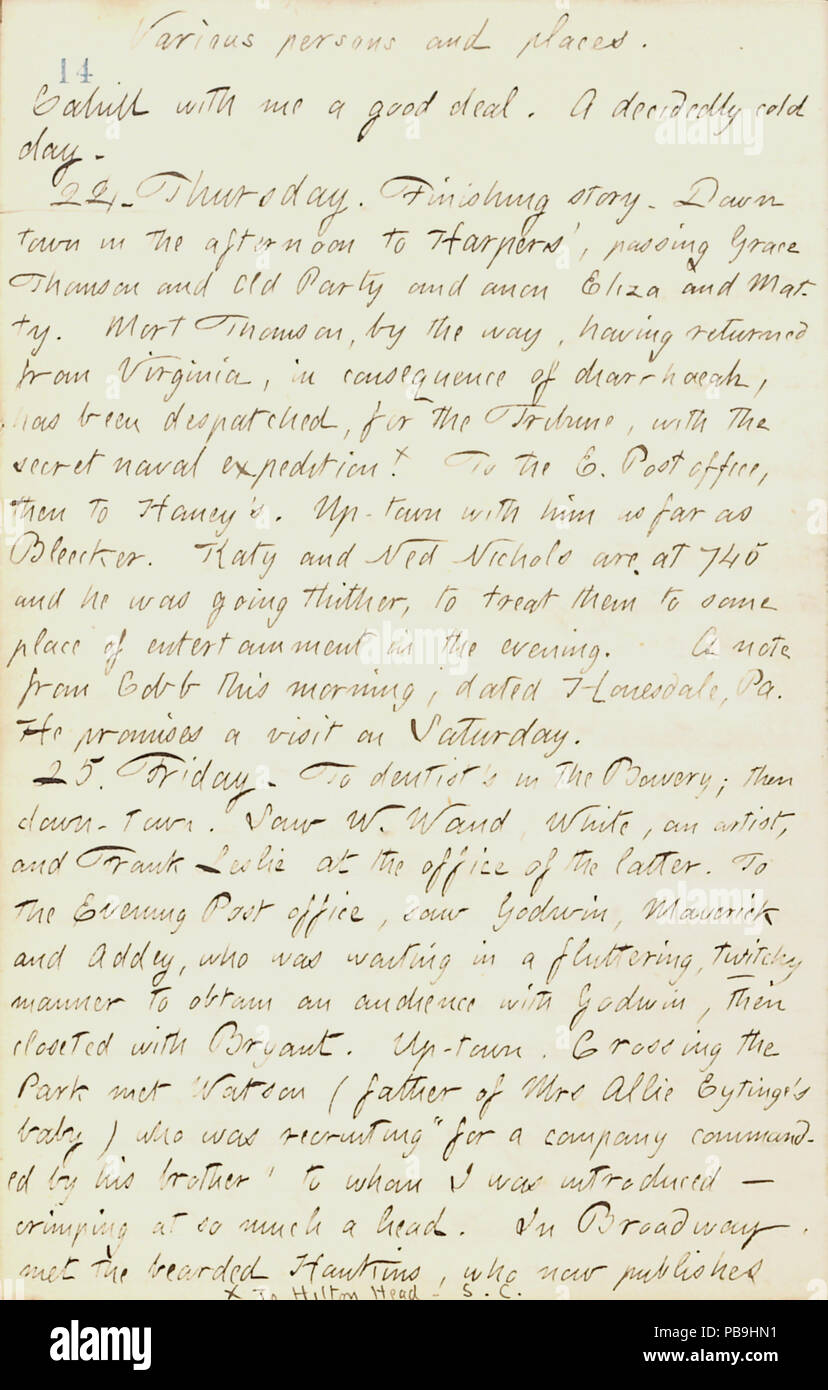 Various persons and places.
14
Cahill with me a good deal. A decidedly cold
day.
24. Thursday. Finishing story. Down
town in the afternoon to Harpers', passing Grace
Thomson and Old Party and anon Eliza and Mat-
ty. Mort Thomson, by the way, having returned
from Virginia, in consequence of diarrhoeah,
has been despatched, for the Tribune, with the
secret naval expedition! x To the E. Post office,
then to Haney's. Up-town with him as far as
Bleecker. Katy and Ned Nichols are at 745
and he was going thither, to treat them to some
place of entertainment in the evening. A note
from Cobb this morning, dated Honesdale, Pa.
He promises a visit on Saturday.
25. Friday. To dentist's in the Bowery; then
down-town. Saw W. Waud, White, an artist,
and Frank Leslie at the office of the latter. To
the Evening Post office, saw Godwin, Maverick
and Addey, who was waiting in a fluttering, twitchy
manner to obtain an audience with Godwin, then
closeted with Bryant. Up-town. Crossing the
Park met Watson (father of Mrs Allie Eytinge's
baby) who was recruiting "for a company command-
ed by his brother" to whom I was introduced —
crimping at so much a head. In Broadway
met the bearded Hawkins, who now publishes
x To Hilton Head - S. C.
alamy
alamy
alamy
alamy
alamy
Image ID: PB9HN1
www.alamy.com